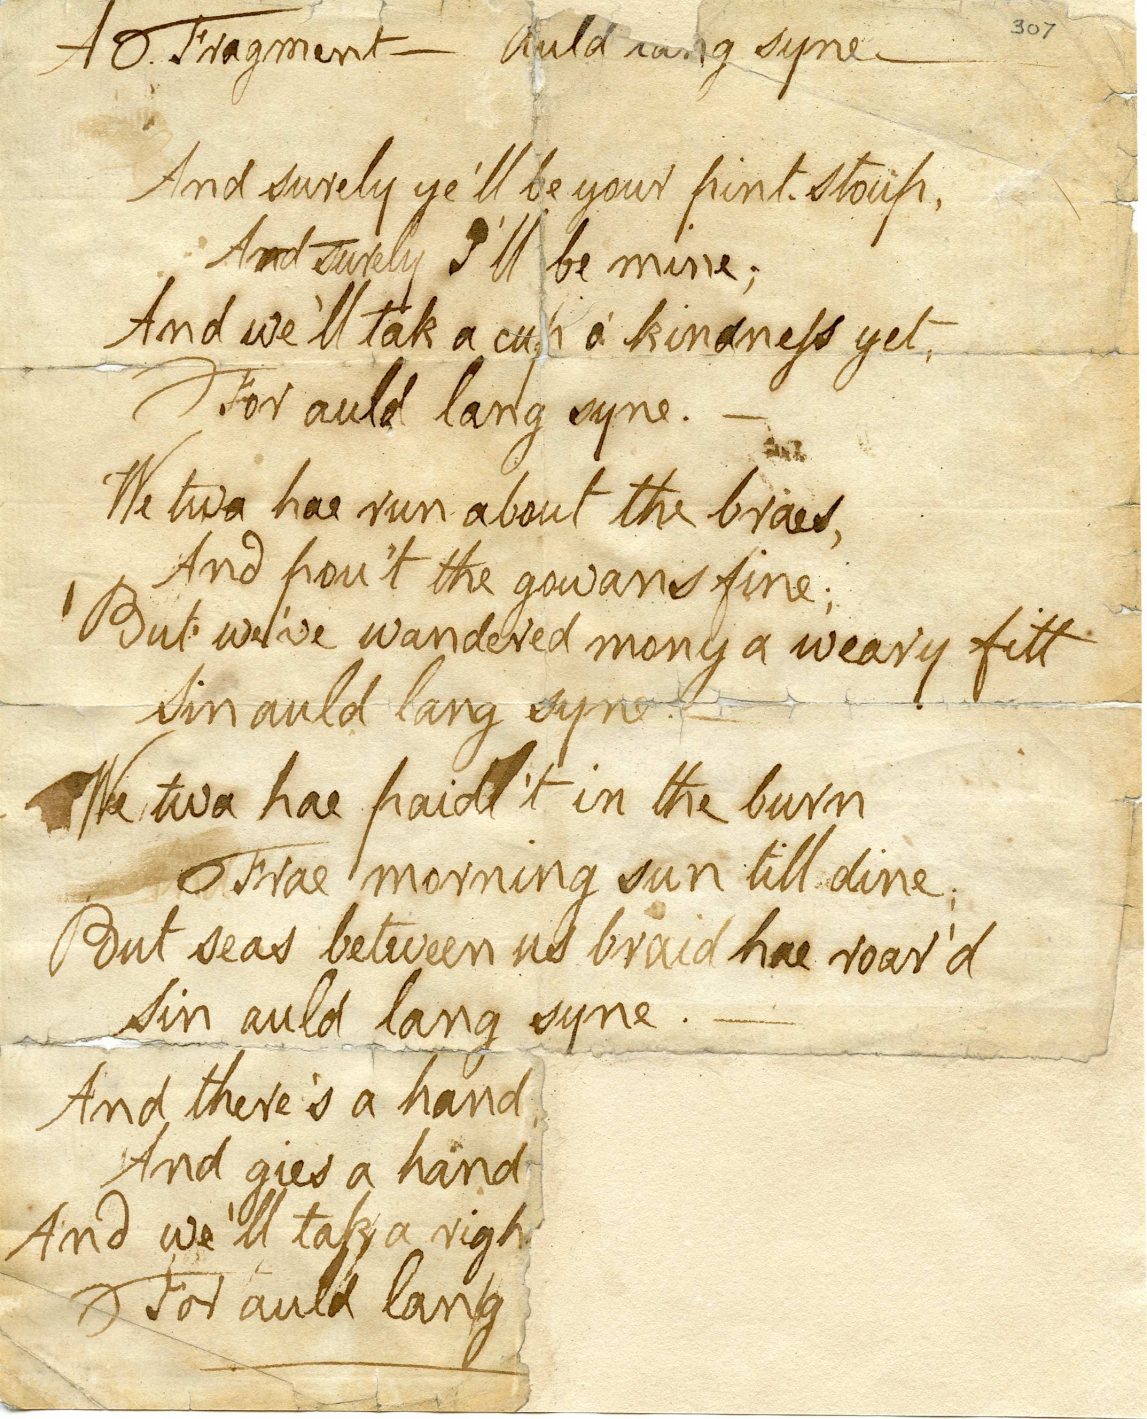 307
A Fragment — Auld lang syne
And surely ye'll be your pint-stoup,
And surely I'll be mine;
And we'll tak a cup o' kindness yet,
For auld lang syne. —
We twa hae run about the braes,
And pou't the gowans fine;
But we've wandered mony a weary fitt
Sin auld lang syne. —
We twa hae paidl't in the burn
Frae morning sun till dine;
But seas between us braid hae roar'd
Sin auld lang syne. —
And there's a hand
And gies a hand
And we'll tak a righ
For auld lang